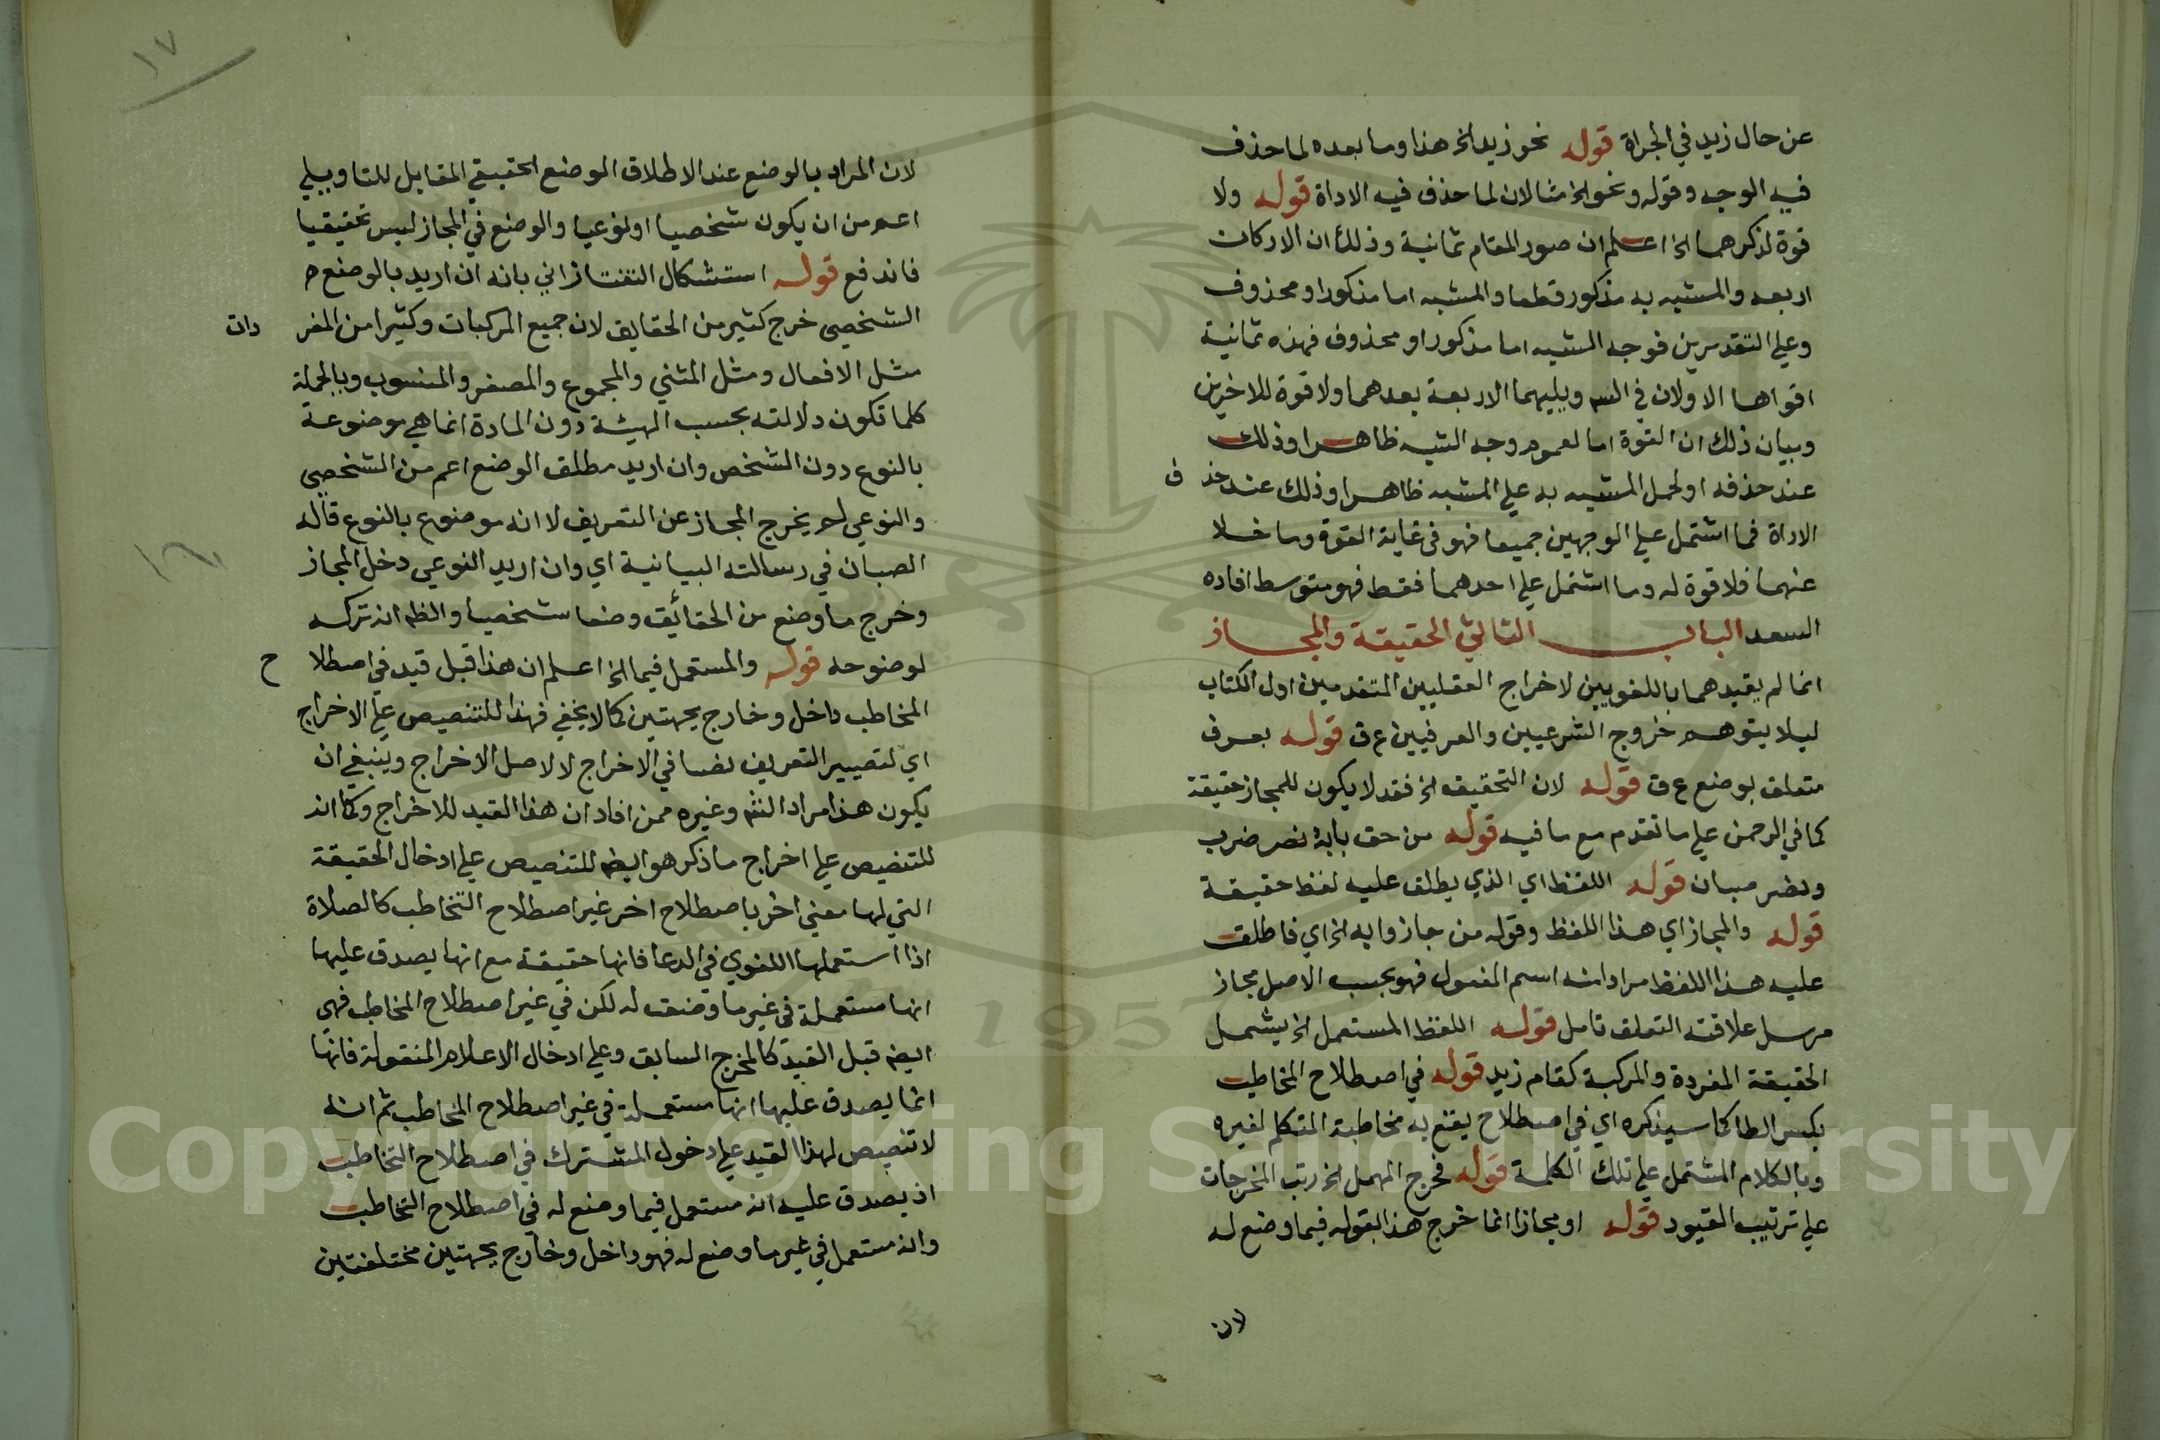 عن حال زيد في الجراة قوله نحو زيد الخ هذا وما بعده لما حذف
فيه الوجه وقوله ونحو الخ مثالان لما حذف فيه الاداة قوله ولا
قوة لذكرهما الخ اعلم ان صور المقام ثمانية وذلك ان الاركان
اربعه والمشبه به مذكور قطعا والمشبه اما مذكور او محذوف
وعلي التقديرين فوجه الشبه اما مذكور او محذوف فهذه ثمانية
اقواها الاولان في ويليهما الاربعة بعدهما ولا قوة للاخيرين
وبيان ذلك ان القوة اما لعموم وجه الشبه ظاهرا وذلك
عند حذفه او لحمل المشبه به علي المشبه ظاهرا وذلك عند حذف
الاداة فما اشتمل علي الوجهين جميعا فهو في غاية القوة وما خلا
عنهما فلا قوة له وما اشتمل علي احدهما فقط فهو متوسط افاده
السعد الباب الثاني الحقيقة والمجاز
انما لم يقيدهما باللغويين لاخراج العقليين المتقدمين اول الكتاب
ليلا يتوهم خروج الشرعيين والعرفيين ع ق قوله بعرف
متعلق بوضع ع ق قوله لان التحقيق الخ فقد لا يكون للمجاز حقيقة
كما في الرحمن علي ما تقدم مع ما فيه قوله من حق بابه نصر ضرب
ونصر صبان قوله اللفظ اي الذي يطلق عليه لفظ حقيقة
قوله والمجاز اي هذا اللفظ وقوله من جازوا به الخ اي فاطلق
عليه هذا اللفظ مرادا منه اسم المفعول فهو بحسب الاصل مجاز
مرسل علاقته التعلق تامل قوله اللفظ المستعمل الخ يشمل
الحقيقة المفردة والمركبة كقام زيد قوله في اصطلاح المخاطب
بكسر الطا كما سيذكره اي في اصطلاح يقع به مخاطبة المتكلم لغيره
وبالكلام المشتمل علي تلك الكلمة قوله فخرج المهمل الخ رتب المخرجات
علي ترتيب القيود قوله او مجازا انما خرج هذا بقوله فيما وضع له
لان
١٧
لان المراد بالوضع عند الاطلاق الوضع الحقيقي المقابل للتاويلي
اعم من ان يكون شخصيا او نوعيا والوضع في المجاز ليس تحقيقيا
فاندفع قوله استشكال التفتازاني بانه ان اريد بالوضع
الشخصي خرج كثير من الحقايق لان جميع المركبات وكثيرا من المفردات
مثل الافعال ومثل المثني والمجموع والمصغر والمنسوب وبالجملة
كلما تكون دلالته بحسب الهيئة دون المادة انما هي موضوعة
بالنوع دون الشخص وان اريد مطلق الوضع اعم من الشخصي
والنوعي لم يخرج المجاز عن التعريف لا انه موضوع بالنوع قاله
الصبان في رسالته البيانية اي وان اريد النوعي دخل المجاز
وخرج ما وضع من الحقائق وضعا شخصيا والظ انه تركه
لوضوحه قوله والمستعمل فيما الخ اعلم ان هذا قبل قيد في اصطلاح
المخاطب داخل وخارج بجهتين كما لا يخفي فهذا للتنصيص علي الاخراج
اي لتصيير التعريف نصا في الاخراج لا لاصل الاخراج وينبغي ان
يكون هذا مراد الش وغيره ممن افاد ان هذا القيد للاخراج وكما انه
للتنصيص علي اخراج ما ذكر هو ايض للتنصيص علي ادخال الحقيقة
التي لها معني اخر باصطلاح اخر غير اصطلاح التخاطب كالصلاة
اذا استعملها اللغوي في الدعا فانها حقيقة مع انها يصدق عليها
انها مستعملة في غير ما وضعت له لكن في غير اصطلاح المخاطب فهي
ايض قبل القيد كالمخرج السابق وعلي ادخال الاعلام المنقولة فانها
انما يصدق عليها انها مستعملة في غير اصطلاح المخاطب ثم انه
لا تنصيص لهذا القيد علي دخول المشترك في اصطلاح التخاطب
اذ يصدق عليه انه مستعمل فيما وضع له في اصطلاح التخاطب
وانه مستعمل في غير ما وضع له فهو داخل وخارج بجهتين مختلفتين
Copyright © King Saud University
1957